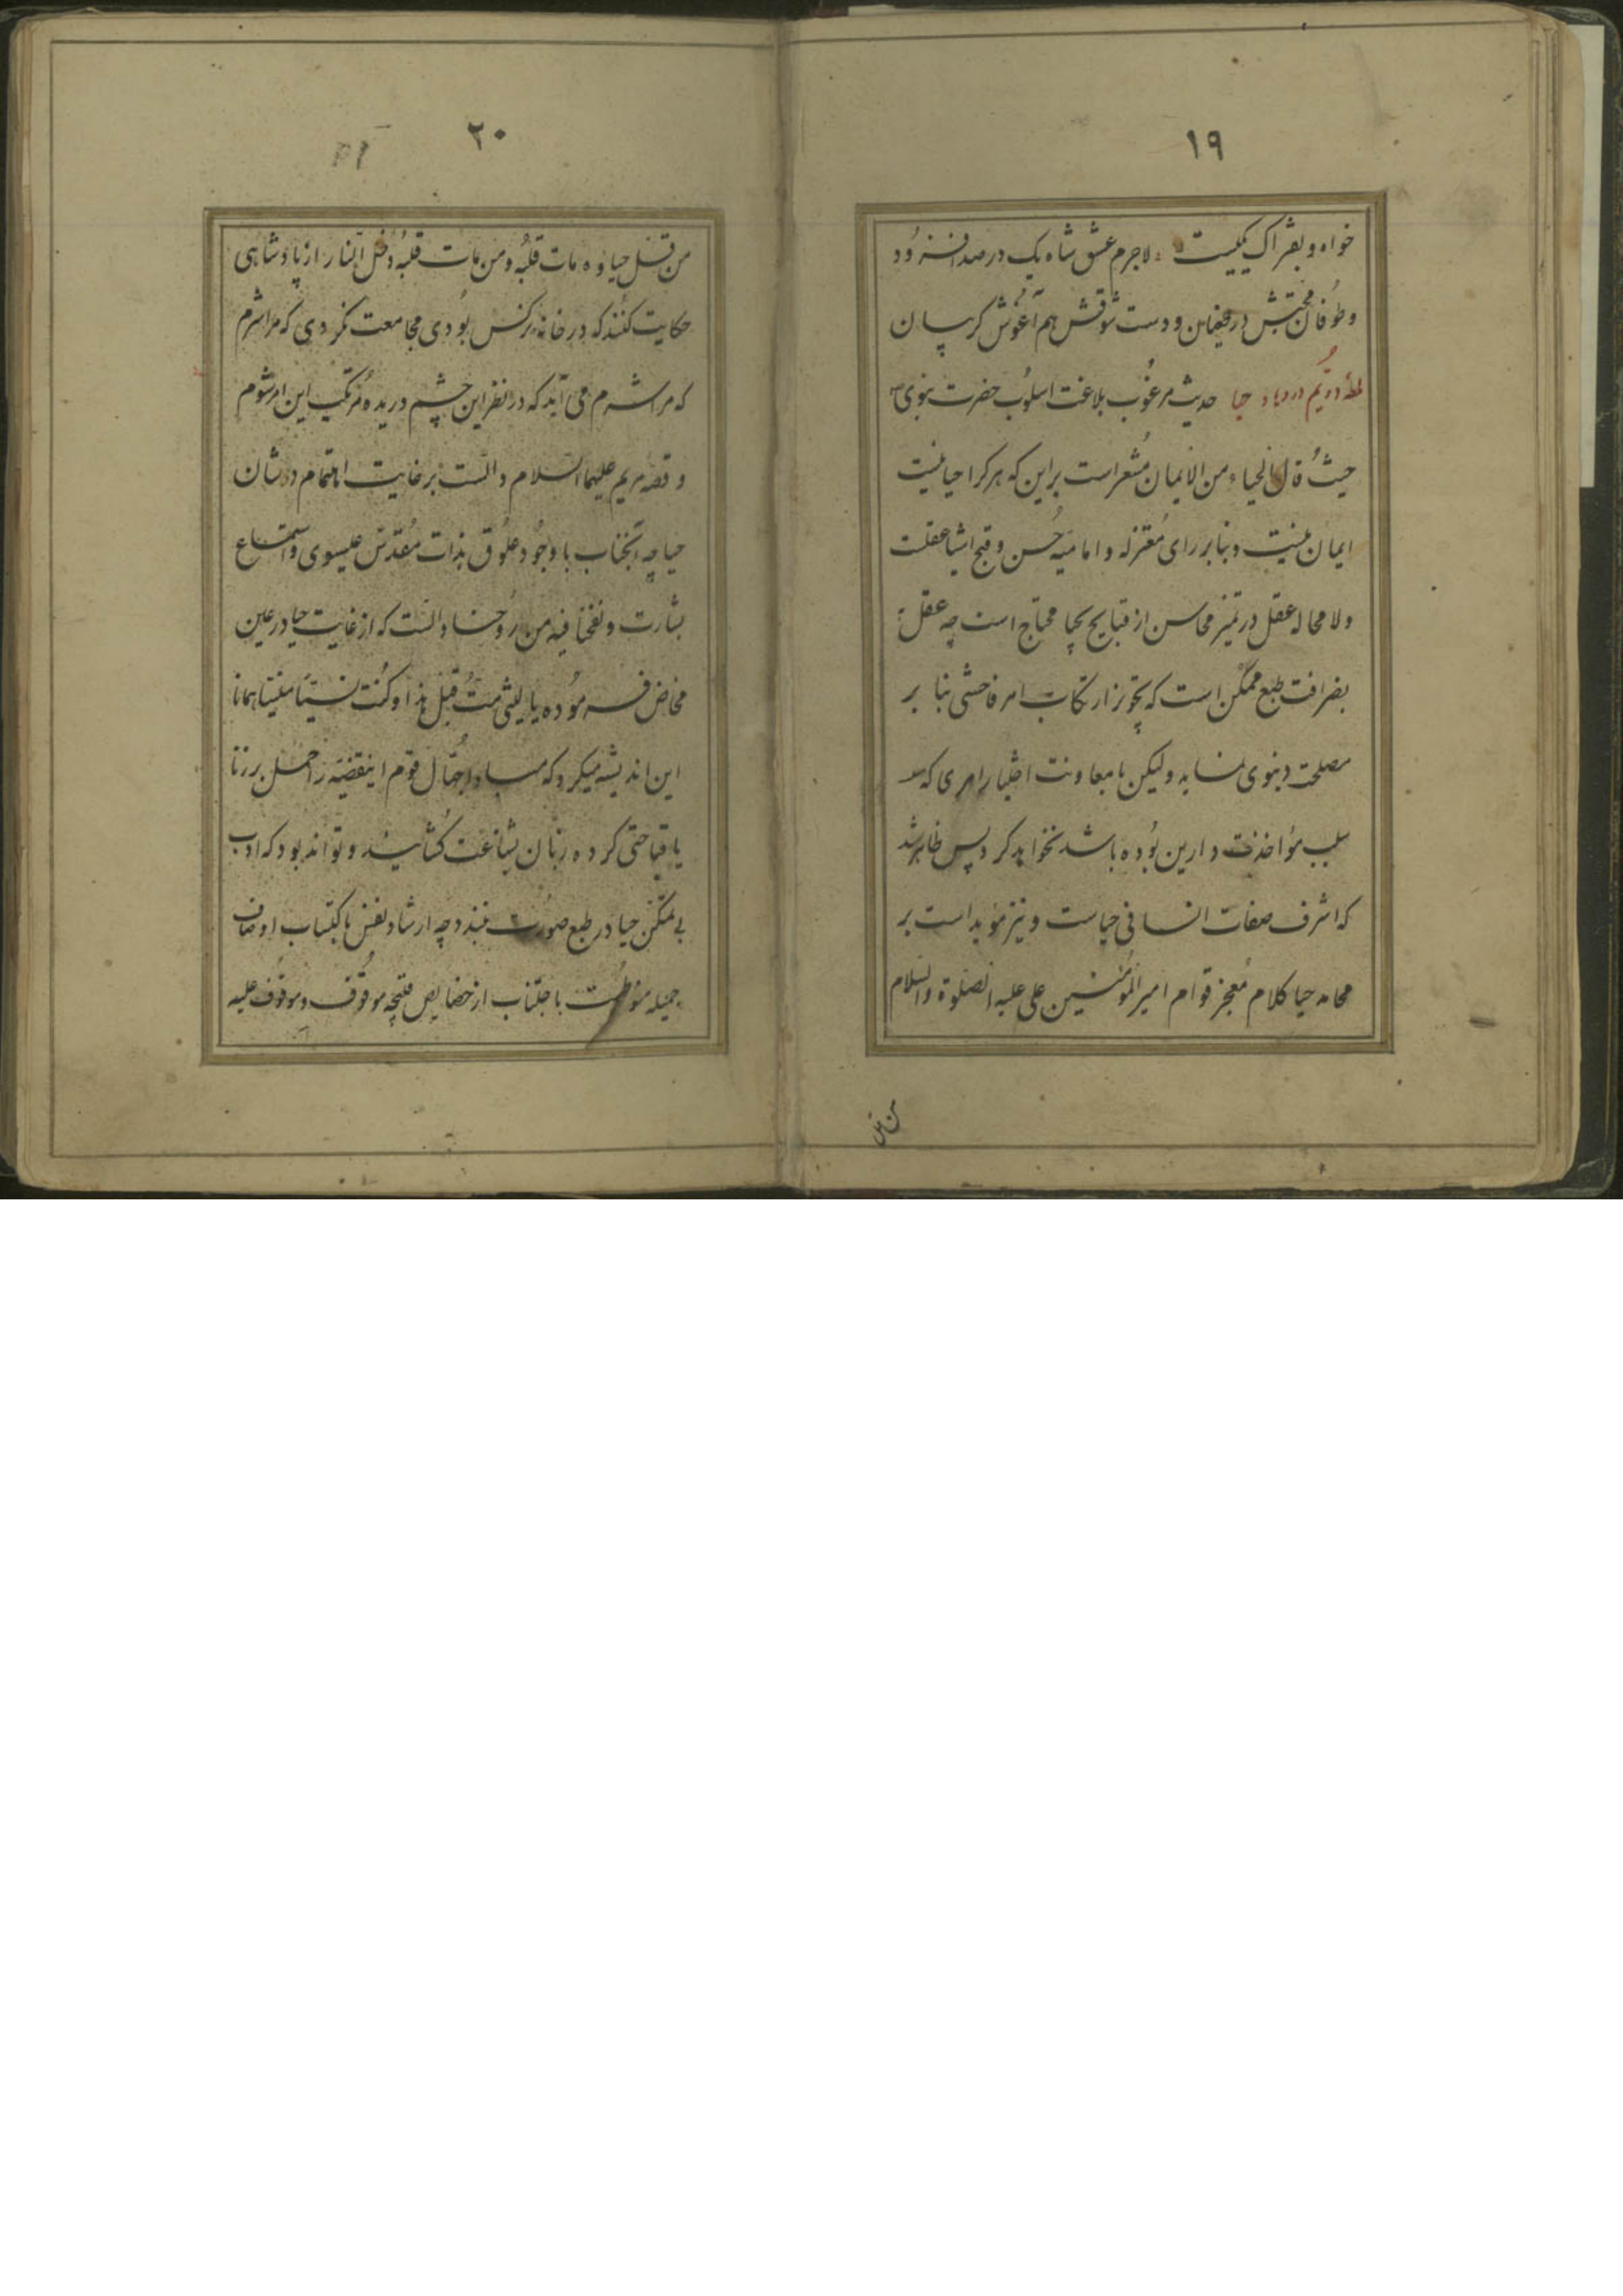 ۱۹
خواه و بفتراک یکیست لاجرم عشق شاه یک در صد افزود
و طوفان محبتش در فیضان و دست شوقش هم آغوش گریبان
حیا حدیث مرغوب بلاغت اسلوب حضرت نبوی
حیث قال الحیاء من الایمان مشعر است بر این که هر کرا حیا نیست
ایمان نیست و بنا بر رای معتزله و امامیه حسن و قبح اشیا عقلست
و لا محاله عقل در تمیز محاسن از قبایح بحیا محتاج است چه عقل
بصرافت طبع ممکن است که تجویز ارتکاب امر فاحشی بنا بر
مصلحت دنیوی نماید ولیکن با معاونت اختیار امری که
سبب مؤاخذت دارین بوده باشد نخواهد کرد پس ظاهر شد
که اشرف صفات انسانی حیاست و نیز مؤید است بر
محامد حیا کلام معجز قوام امیر المؤمنین علی علیه الصلوة والسلام
من قل
۲۰
۲۱
من قل حیاوه مات قلبه و من مات قلبه دخل النار از پادشاهی
حکایت کنند که در خانه نرکس بودی مجامعت نکردی که مرا شرم
که مرا شرم می آید که در نظر این چشم دریده مرتکب این امر شوم
و قصه مریم علیها السلام دالست بر غایت اهتمام در شان
حیا چه آنجناب با وجود علوق بذات مقدس عیسوی و استماع
بشارت و نفخنا فیه من روحنا دالست که از غایت حیا در عین
مخاض فرموده یا لیتنی مت قبل هذا و کنت نسیا منسیا همانا
این اندیشه میکرد که مبادا جهال قوم اینقضیه را حمل بر زنا
یا قباحتی کرده زبان بشناعت کشایند و تواند بود که ادب
بی تمکن حیا در طبع صورت نبندد چه ارشاد نفس باکتساب اوصاف
جمیله باجتناب از خصایص قبیحه موقوف و موقوف علیه